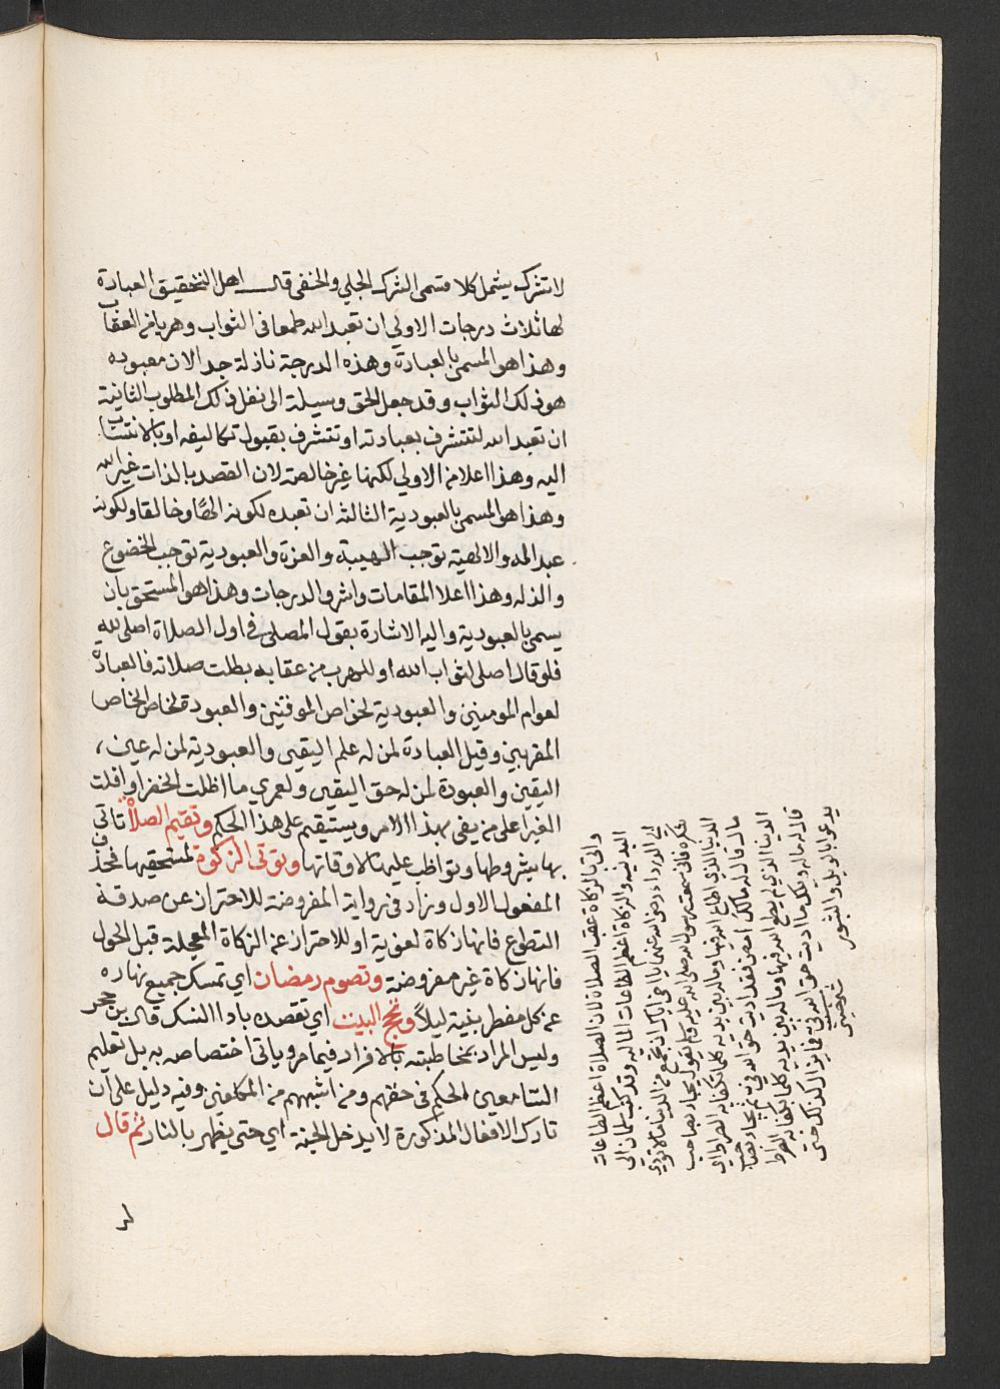 لا تشرك يشمل كلا قسمى الشرك الجلي والخفى قال اهل التحقيق العبادة
لها ثلاث درجات الاولى ان تعبد الله طمعا فى الثواب وهربا من العقاب
وهذا هو المسمى بالعبادة وهذه الدرجة نازلة جدا لان معبوده
هو ذلك الثواب وقد جعل الحق وسيلة الى نفل ذلك المطلوب الثانية
ان تعبد الله لتتشرف بعبادته او تتشرف بقبول تكاليفه او بالانتساب
اليه وهذا اعلا من الاولى لكنها غير خالصة لان القصد بالذات غير الله
وهذا هو المسمى بالعبودية الثالثة ان تعبده لكونه الهًا وخالقا ولكونه
عبدا له والالهية توجب الهيبة والعزة والعبودية توجب الخضوع
والذلة وهذا اعلا المقامات واشرف الدرجات وهذا هو المستحق بان
يسمى بالعبودية واليه الاشارة بقول المصلى فى اول الصلاة اصلى لله
فلو قال اصلى لثواب الله او للهرب من عقابه بطلت صلاته فالعبادة
لعوام المومنين والعبودية لخواص الموقنين والعبودة لخاص الخاص
المقربين وقيل العبادة لمن له علم اليقين والعبودية لمن له عين
اليقين والعبودة لمن له حق اليقين ولعمري ما اظلت الخضرا واقلت
الغبرا على من يفى بهذا الامر ويستيقم على هذا الحكم وتقيم الصلاة تاتى
بها بشروطها وتواظب عليها لاوقاتها وتوتى الزكوة لمستحقيها فحذف
المفعول الاول وزاد فى رواية المفروضة للاحتراز عن صدقة
التطوع فانها زكاة لغوية او للاحتراز عن الزكاة المعجلة قبل الحول
فانها زكاة غير مفروضة وتصوم رمضان اي تمسك جميع نهاره
عن كل مفطر بنية ليلاً وتحج البيت اي تقصده باداا النسك قال بن حجر
وليس المراد بمخاطبته بالافراد فيما مر وياتى اختصاصه به بل تعليم
السامعين الحكم فى حقهم ومن اشبههم من المكلفين وفيه دليل على ان
تارك الافعال المذكورة لا يدخل الجنة اي حتى يطهر بالنار ثم قال
واتى بالزكاة عقب الصلاة لان الصلاة اعظم الطاعات
البدنية والزكاة اعظم الطاعات المالية وقد كتب سلمان الى
ابى الدرداء رضى الله عنهما يا اخى اياك ان تجمع من الدنيا ما لا تودي
شكره فانى سمعت رسول الله صلى الله عليه وسلم يقول يجاء بصاحب
الدنيا الذي اطاع الله فيها وماله بين يديه كلما تكفأ به الصراط
قال له ماله امض فقد اديت حق الله فى ثم يجاء بصاحب
الدنيا الذي لم يطع الله فيها وماله بين يديه كلما تكفأ به الصراط
قال له ماله ويلك ما اديت حق الله فى فما يزال كذلك حتى
يدعو بالويل والثبور